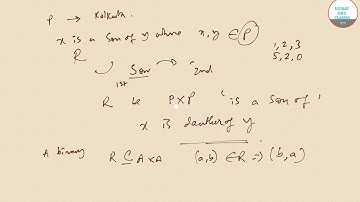 P → Kolkata.
x is a son of y where x, y ∈ P
R
1, 2, 3
5, 2, 0
1st Son 2nd
R be P×P 'is a son of'
x is dauther of y
A binary R ⊆ A×A (a,b) ∈ R ⇒ (b,a)